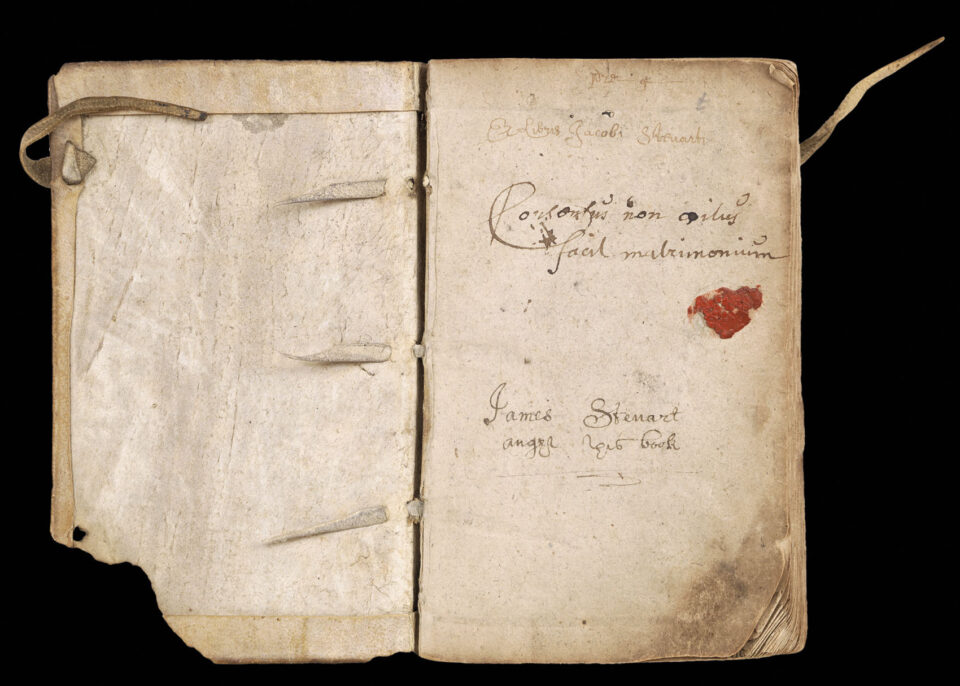 Ex Libris Jacobi Steuart
Consensus non coitus
facit matrimonium
James Steuart
book